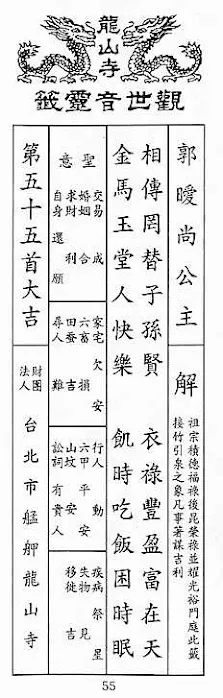 龍山寺
觀世音靈籤
郭曖尚公主
解
祖宗積德福祿後昆榮祿並耀光裕門庭此籤
接竹引泉之象凡事著謀吉利
相傳罔替子孫賢 衣祿豐盈富在天
金馬玉堂人快樂 飢時吃飯困時眠
聖意
交易 成
婚姻 合
求財 利
自身 還願
家宅 欠安
六畜 損
田蚕 吉
尋人 難
行人 動
六甲 平安
山墳 安
訟詞 有貴人
疾病 祭星
失物 見
移徙 吉
第五十五首大吉
財團
法人
台北市艋舺龍山寺
55